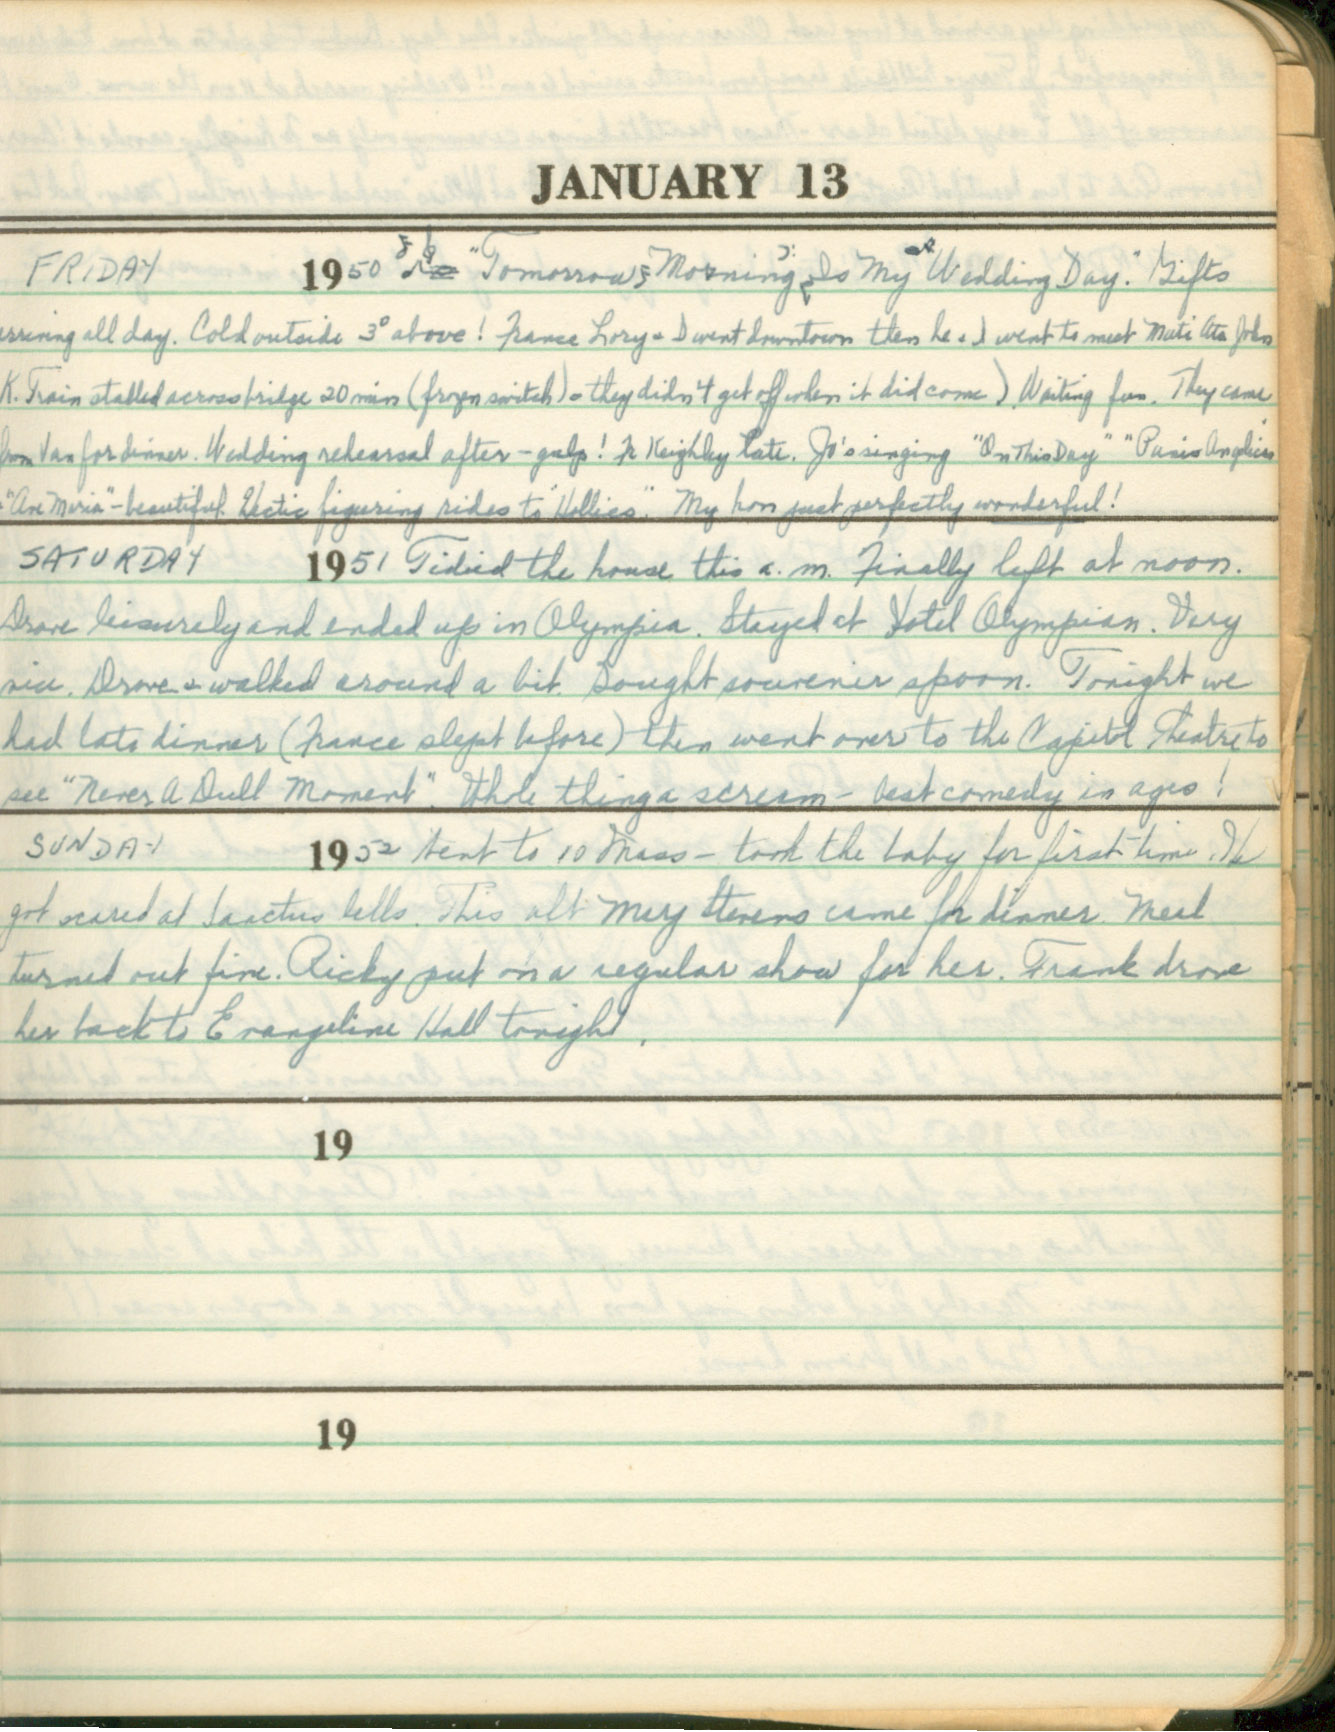 JANUARY 13
FRIDAY 1950 "Tomorrow Morning Is My Wedding Day." Gifts
arriving all day. Cold outside 3° above! France Lory & I went downtown then he & I went to meet John
K. Train stalled across bridge 20 min (frozen switch) & they didn't get off when it did come). Waiting fun. They came
from Van for dinner. Wedding rehearsal after - gulp! Fr Keighley late. Jo's singing "On This Day" "Panis Angelicus
"Ave Maria" - beautiful. Hectic figuring rides to "Hollies". My hon just perfectly wonderful!
SATURDAY 1951 Tidied the house this a.m. Finally left at noon.
Drove leisurely and ended up in Olympia. Stayed at Hotel Olympian. Very
nice. Drove & walked around a bit. Bought souvenir spoon. Tonight we
had late dinner (France slept before) then went over to the Capitol Theatre to
see "Never A Dull Moment". Whole thing a scream - best comedy in ages!
SUNDAY 1952 Went to 10 Mass - took the baby for first time. He
got scared at Sanctus bells. This aft Mary Stevens came for dinner. Meal
turned out fine. Ricky put on a regular show for her. Frank drove
her back to Evangeline Hall tonight.
19
19